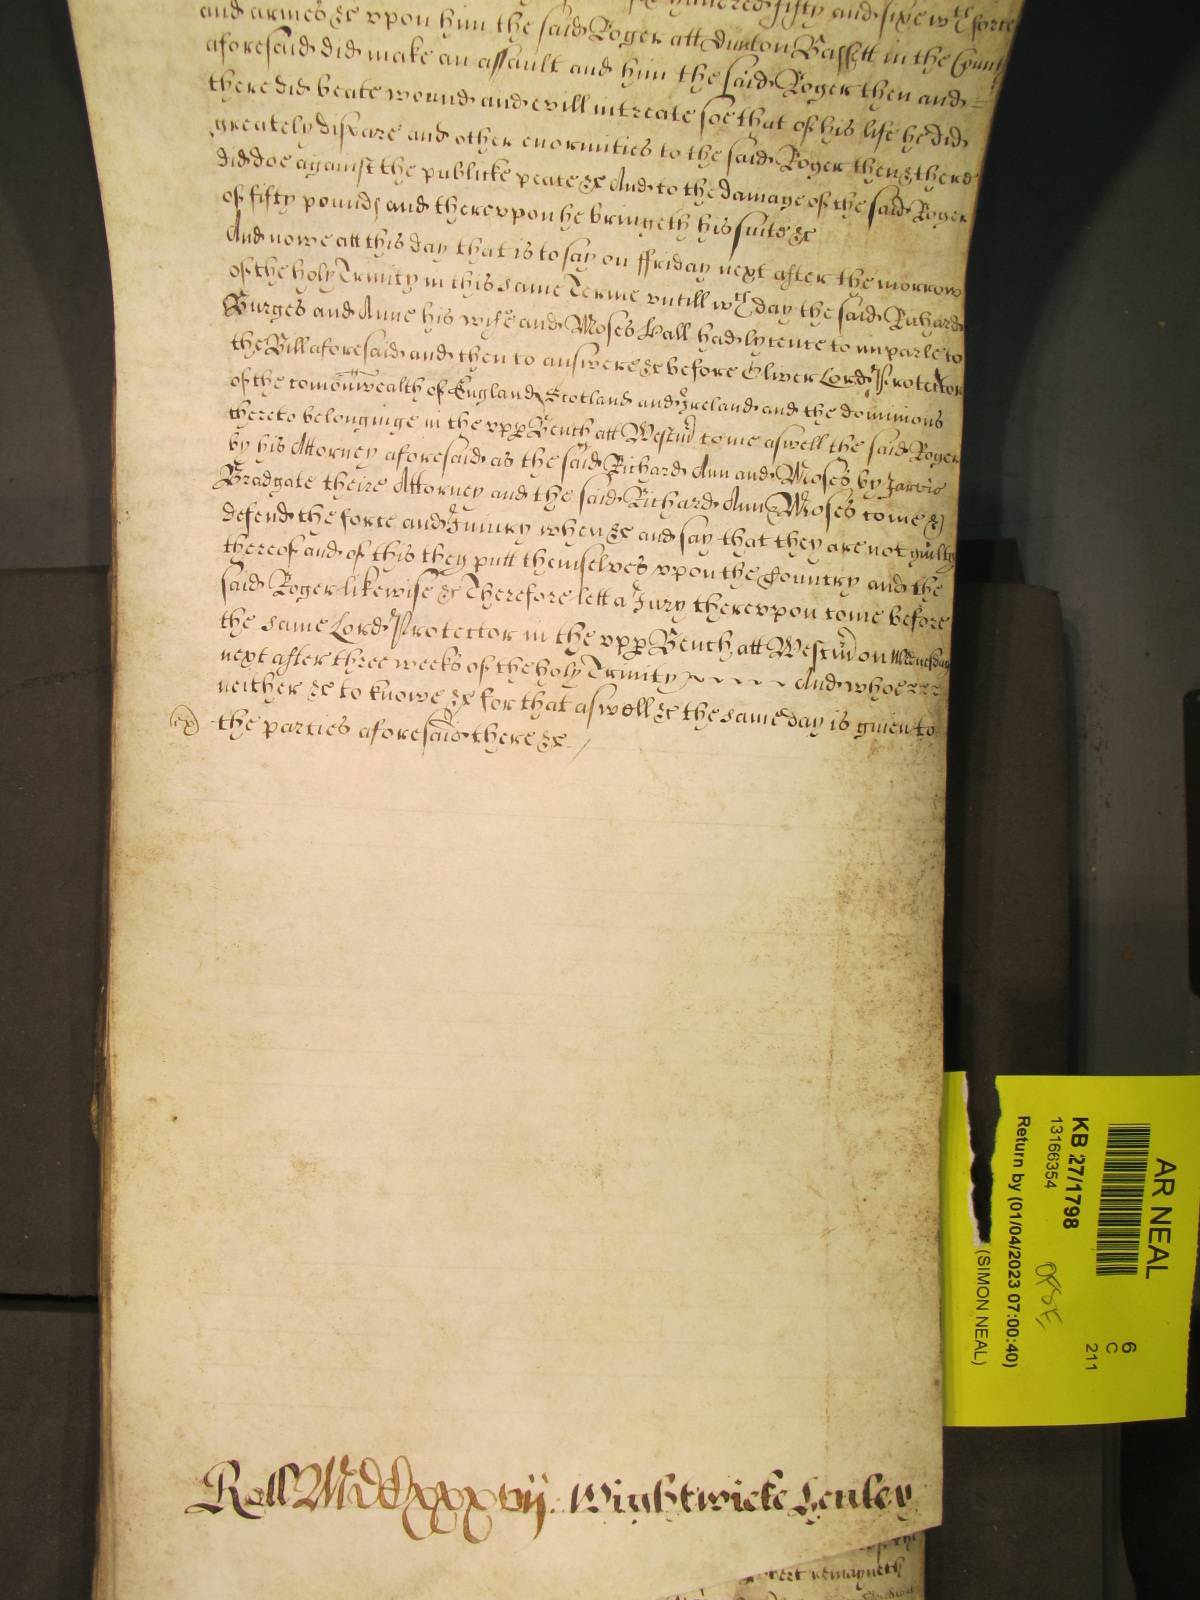 hundred fifty and sixe wth force
and armes &c vpon him the said Roger att Dunton Bassett in the County
aforesaid did make an assault and him the said Roger then and =
there did beate wound and evill intreate soe that of his life he did
greately dispare and other enormities to the said Roger then & there
did doe against the publicke peace &c And to the damage of the said Roger
of fifty pounds and therevpon he bringeth his suite &c
And nowe att this day that is to say on ffriday next after the morrow
of the holy Trinity in this same Terme vntill wch day the said Richard
Burges and Anne his wife and Moses Hall had lycence to imparle to
the Bill aforesaid and then to answere &c before Oliver Lord Protector
of the comonwealth of England Scotland and Ireland and the dominions
thereto belonginge in the vpp Bench att Westm come aswell the said Roger
by his Attorney aforesaid as the said Richard Ann and Moses by Jarvis
Bradgate theire Attorney and the said Richard Ann & Moses come &
defend the force and Iniury when &c and say that they are not guilty
thereof and of this they putt themselves vpon the Country and the
said Roger likewise &c Therefore lett a Jury therevpon come before
the same Lord Protector in the vpp Bench att Westm on Wednesday
next after three weeks of the holy Trinity And whoe
neither &c to knowe &c for that aswell &c the same day is given to
ex the parties aforesaid there &c
Roll Mdcxxxvij. Wightwicke Henley
remayneth
AR NEAL
6
C
211
KB 27/1798
13166354
Return by (01/04/2023 07:00:40)
(SIMON NEAL)